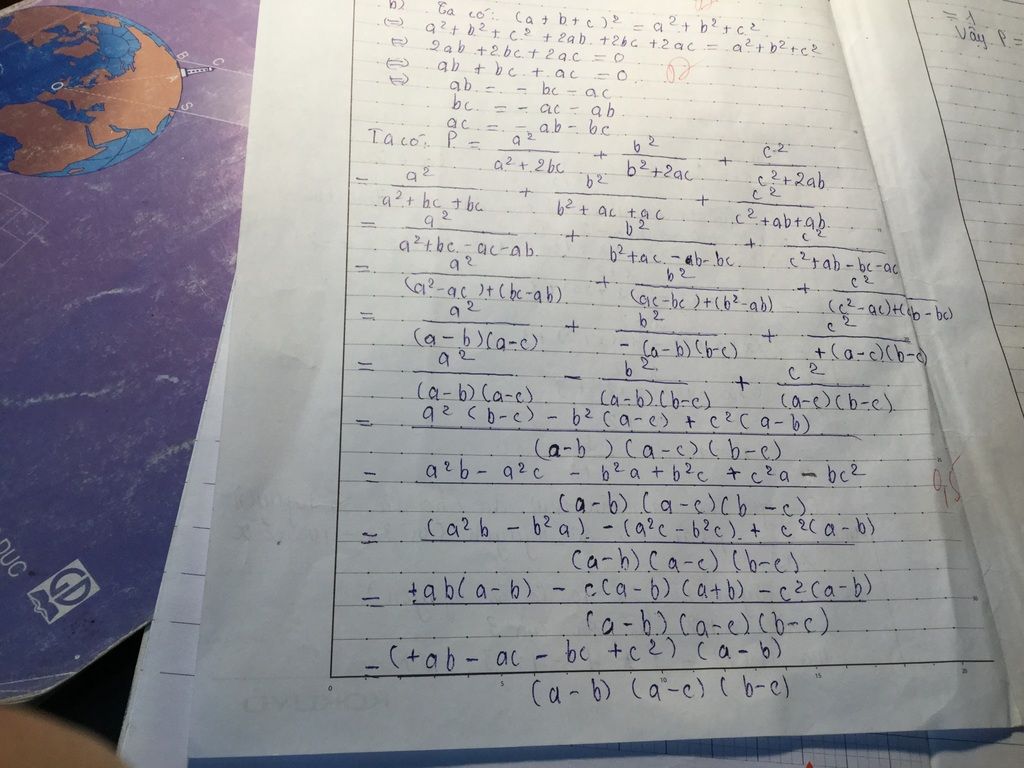 b) Ta có: (a + b + c)² = a² + b² + c²
⇔ a² + b² + c² + 2ab + 2bc + 2ac = a² + b² + c²
⇔ 2ab + 2bc + 2ac = 0
⇔ ab + bc + ac = 0
⇔ ab = - bc - ac
bc = - ac - ab
ac = - ab - bc
Ta có: P = a²/(a² + 2bc) + b²/(b² + 2ac) + c²/(c² + 2ab)
= a²/(a² + bc + bc) + b²/(b² + ac + ac) + c²/(c² + ab + ab)
= a²/(a² + bc - ac - ab) + b²/(b² + ac - ab - bc) + c²/(c² + ab - bc - ac)
= a²/((a² - ac) + (bc - ab)) + b²/((ac - bc) + (b² - ab)) + c²/((c² - ac) + (ab - bc))
= a²/((a - b)(a - c)) + b²/(-(a - b)(b - c)) + c²/(+(a - c)(b - c))
= a²/((a - b)(a - c)) - b²/((a - b)(b - c)) + c²/((a - c)(b - c))
= (a²(b - c) - b²(a - c) + c²(a - b))/((a - b)(a - c)(b - c))
= (a²b - a²c - b²a + b²c + c²a - bc²)/((a - b)(a - c)(b - c))
= ((a²b - b²a) - (a²c - b²c) + c²(a - b))/((a - b)(a - c)(b - c))
= (+ab(a - b) - c(a - b)(a + b) - c²(a - b))/((a - b)(a - c)(b - c))
= (+ab - ac - bc + c²)(a - b)/((a - b)(a - c)(b - c))
0 5 10 15 20
Vậy P =
0,5
KOKUYO
B
C
A
S
O
DUC